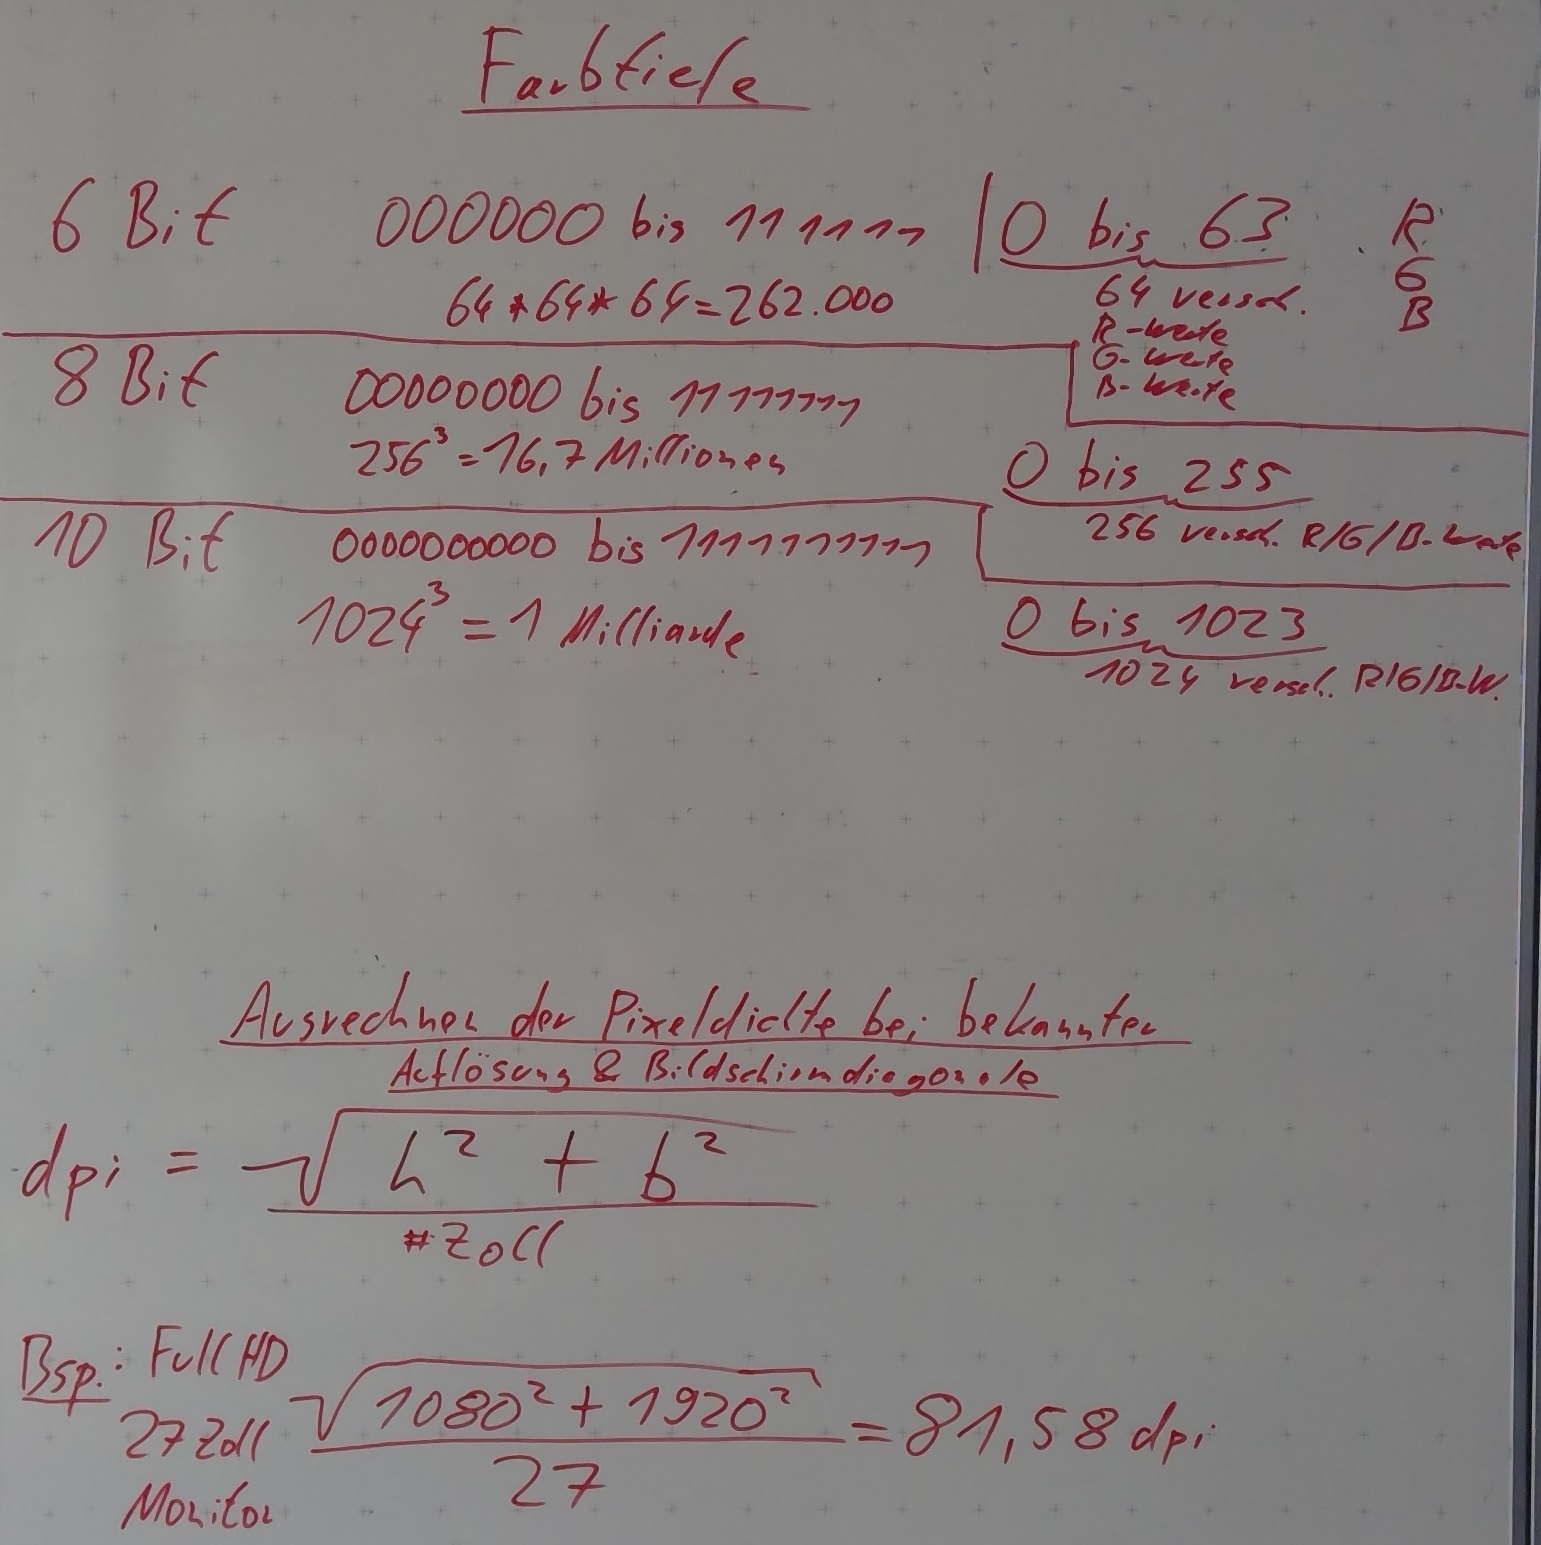 Farbtiefe
6 Bit 000000 bis 111111 | 0 bis 63 R
G
B
64 * 64 * 64 = 262.000
64 versch.
R-Werte
G-Werte
B-Werte
8 Bit 00000000 bis 11111111
256³ = 16,7 Millionen
0 bis 255
256 versch. R/G/B-Werte
10 Bit 0000000000 bis 1111111111
1024³ = 1 Milliarde
0 bis 1023
1024 versch. R/G/B-W.
Ausrechnen der Pixeldichte bei bekannter
Auflösung & Bildschirmdiagonale
dpi = √(h² + b²)
#Zoll
Bsp.: Full HD
27 Zoll
Monitor
√(1080² + 1920²) = 81,58 dpi
27